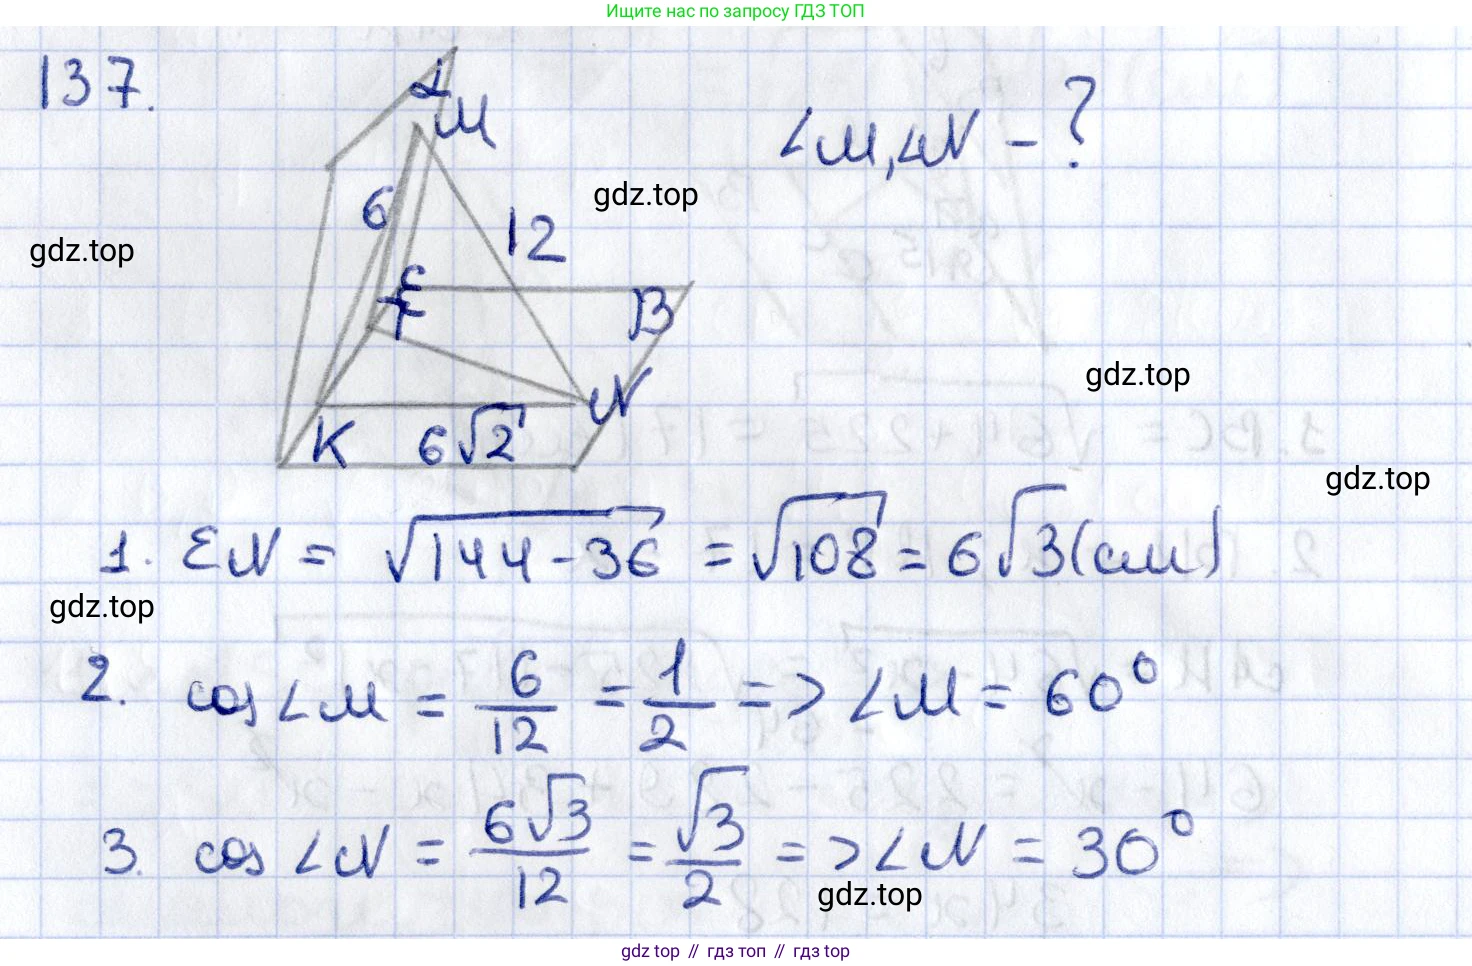 Ищите нас по запросу ГДЗ ТОП
137.
α
M
∠M, ∠N - ?
6
gdz.top
12
gdz.top
E
F
B
gdz.top
N
K
6√2
gdz.top
1. EN = √144-36 = √108 = 6√3 (см)
gdz.top
2. cos∠M = 6/12 = 1/2 => ∠M = 60°
3. cos∠N = 6√3/12 = √3/2 => ∠N = 30°
gdz.top
gdz top // гдз топ // гдз top